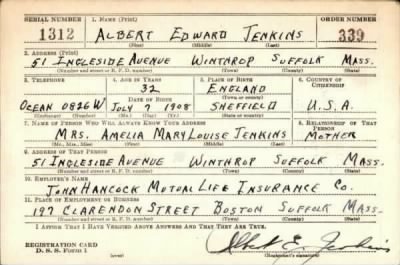 SERIAL NUMBER 1. NAME (Print) ORDER NUMBER
1312 ALBERT EDWARD JENKINS 339
(First) (Middle) (Last)
2. ADDRESS (Print)
51 INGLESIDE AVENUE WINTHROP SUFFOLK MASS.
(Number and street or R. F. D. number) (Town) (County) (State)
3. TELEPHONE 4. AGE IN YEARS 5. PLACE OF BIRTH 6. COUNTRY OF CITIZENSHIP
32 ENGLAND
DATE OF BIRTH (Town or county)
OCEAN 0826W JULY 7 1908 SHEFFIELD U.S.A.
(Exchange) (Number) (Mo.) (Day) (Yr.) (State or country)
7. NAME OF PERSON WHO WILL ALWAYS KNOW YOUR ADDRESS 8. RELATIONSHIP OF THAT PERSON
MRS. AMELIA MARY LOUISE JENKINS MOTHER
(Mr., Mrs., Miss) (First) (Middle) (Last)
9. ADDRESS OF THAT PERSON
51 INGLESIDE AVENUE WINTHROP SUFFOLK MASS.
(Number and street or R. F. D. number) (Town) (County) (State)
10. EMPLOYER'S NAME
JOHN HANCOCK MUTUAL LIFE INSURANCE CO.
11. PLACE OF EMPLOYMENT OR BUSINESS
197 CLARENDON STREET BOSTON SUFFOLK MASS.
(Number and street or R. F. D. number) (Town) (County) (State)
I AFFIRM THAT I HAVE VERIFIED ABOVE ANSWERS AND THAT THEY ARE TRUE.
REGISTRATION CARD
D. S. S. Form 1 (over) Albert E. Jenkins
(Registrant's signature)